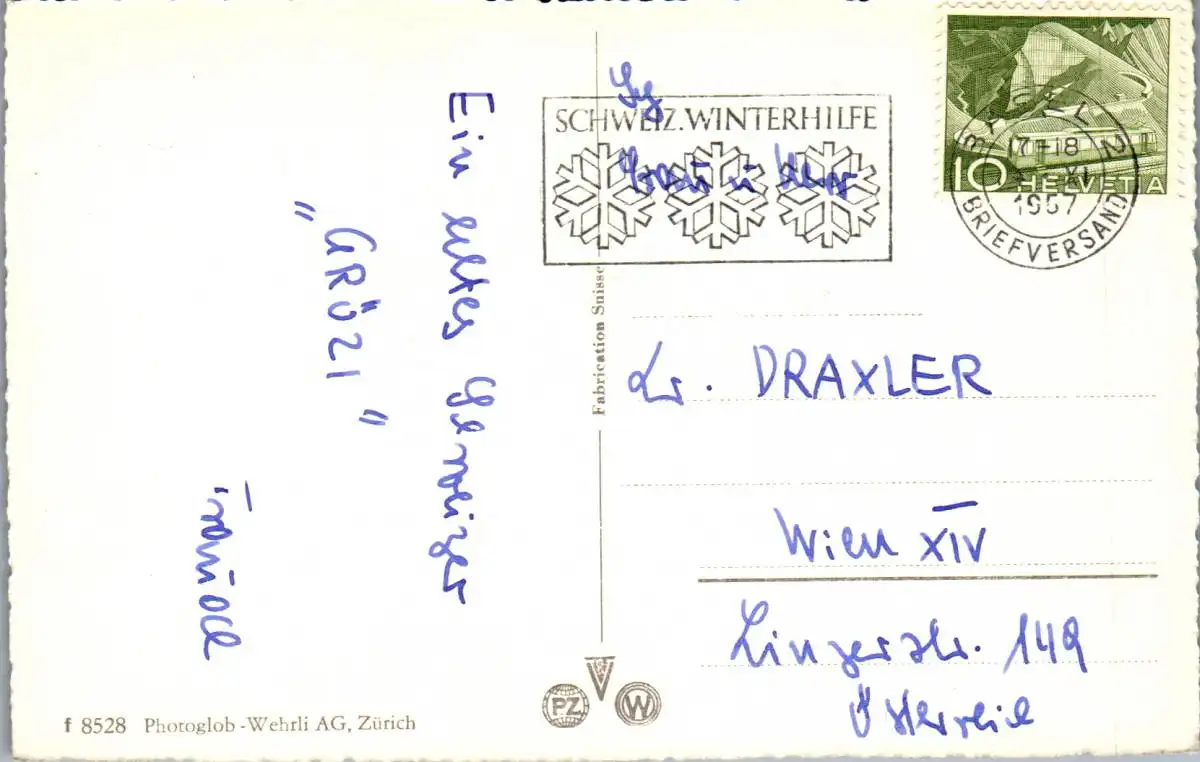 Ein altes Schweizer
"GRÜZI"
Traudl
f 8528 Photoglob-Wehrli AG, Zürich
Fabrication Suisse
SCHWEIZ. WINTERHILFE
10 HELVETIA
BASEL 2
17-18
XI
1957
BRIEFVERSAND
Frau u Herr
Dr. DRAXLER
Wien XIV
Linzerstr. 149
Österreich
PZ
W